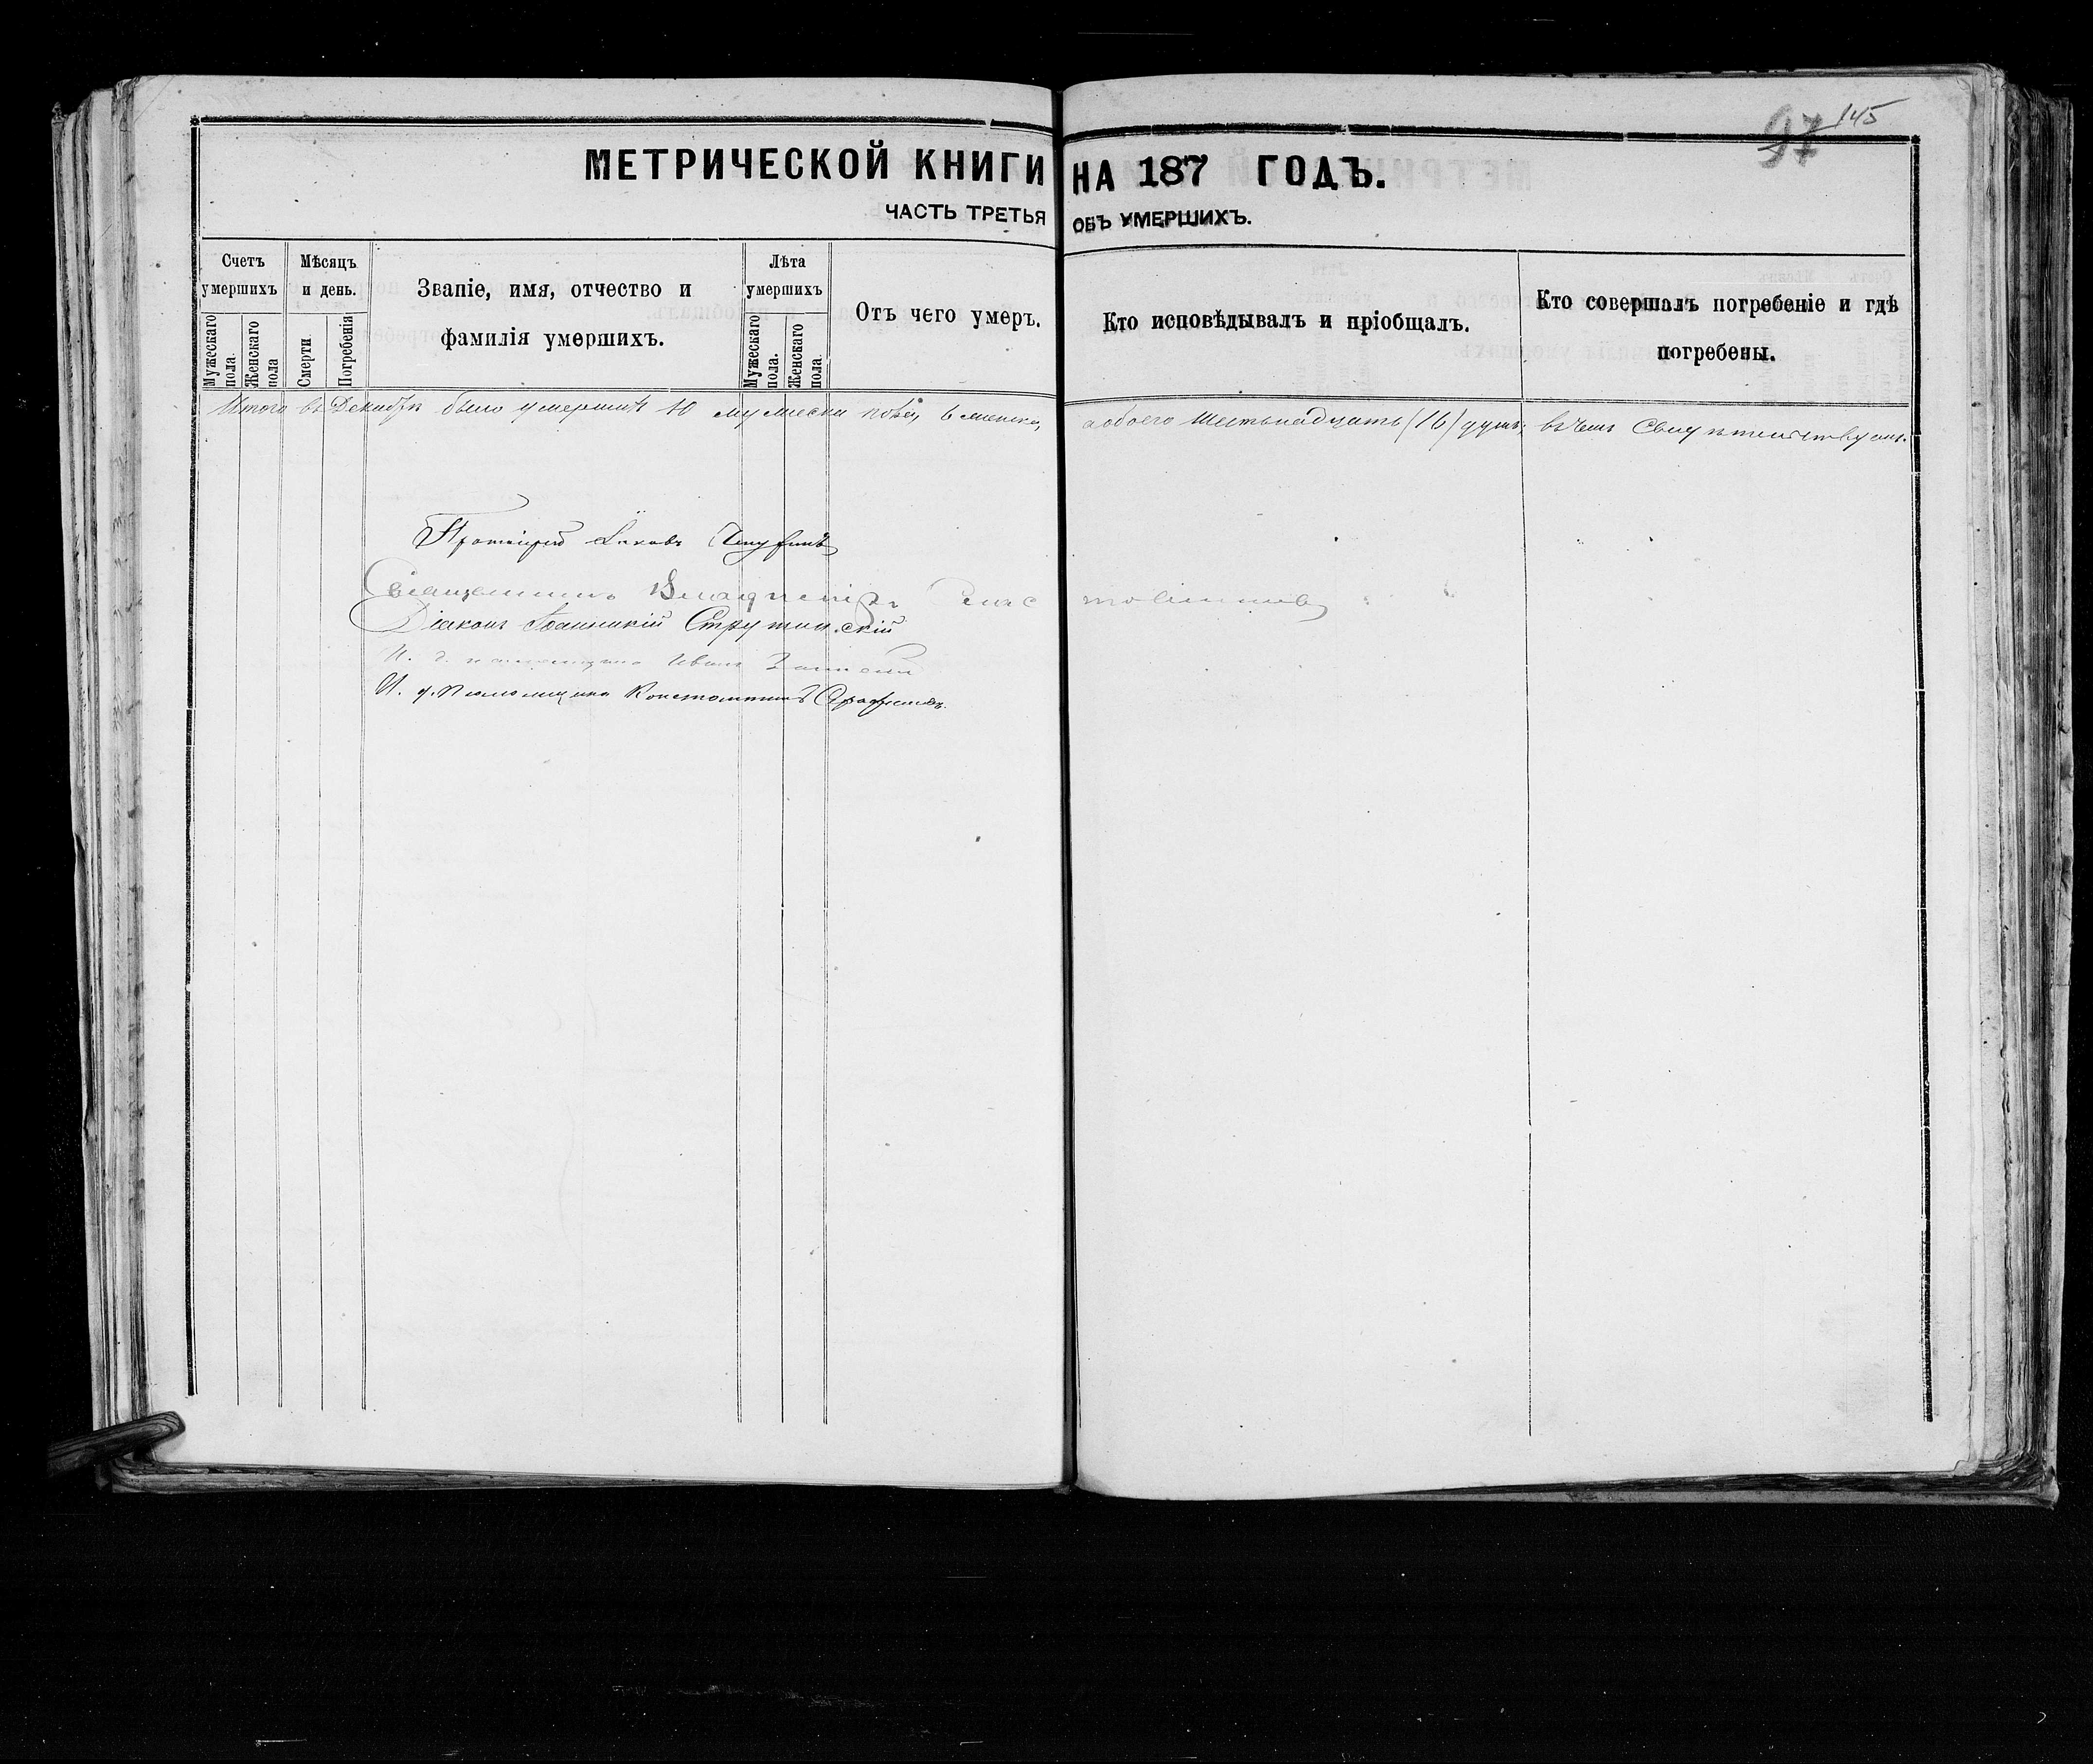 97 145
МЕТРИЧЕСКОЙ КНИГИ НА 187 ГОДЪ.
ЧАСТЬ ТРЕТЬЯ ОБЪ УМЕРШИХЪ.
Счетъ умершихъ
Мужескаго пола.
Женскаго пола
Мѣсяцъ и день.
Смерти.
Погребенія
Званіе, имя, отчество и
фамилія умершихъ.
Лѣта умершихъ
Мужескаго пола.
Женскаго пола.
Отъ чего умеръ.
Кто исповѣдывалъ и пріобщалъ.
Кто совершалъ погребеніе и гдѣ
погребены.
Итого въ Декабрѣ было умершихъ 10 мужеска пола, 6 женска, а обоего шестьнадцать (16) душъ; въ чемъ свидѣтельствуемъ.
Протоіерей Іаковъ
Священникъ
Діаконъ Іоанникій Струтинскій
И. д. псаломщика Иванъ
И. д. псаломщика Константинъ Серафимовъ.